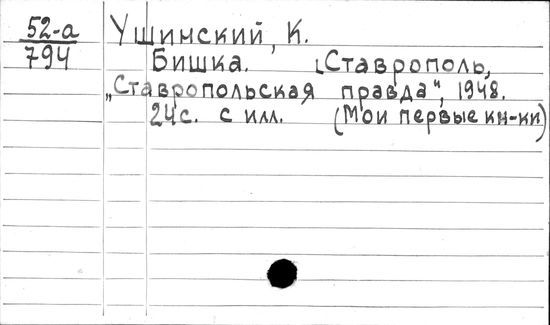 52-а
794
Ушинский, К.
Бишка. [Ставрополь,
„Ставропольская правда", 1948.
24с. с илл. (Мои первые кн-ки)